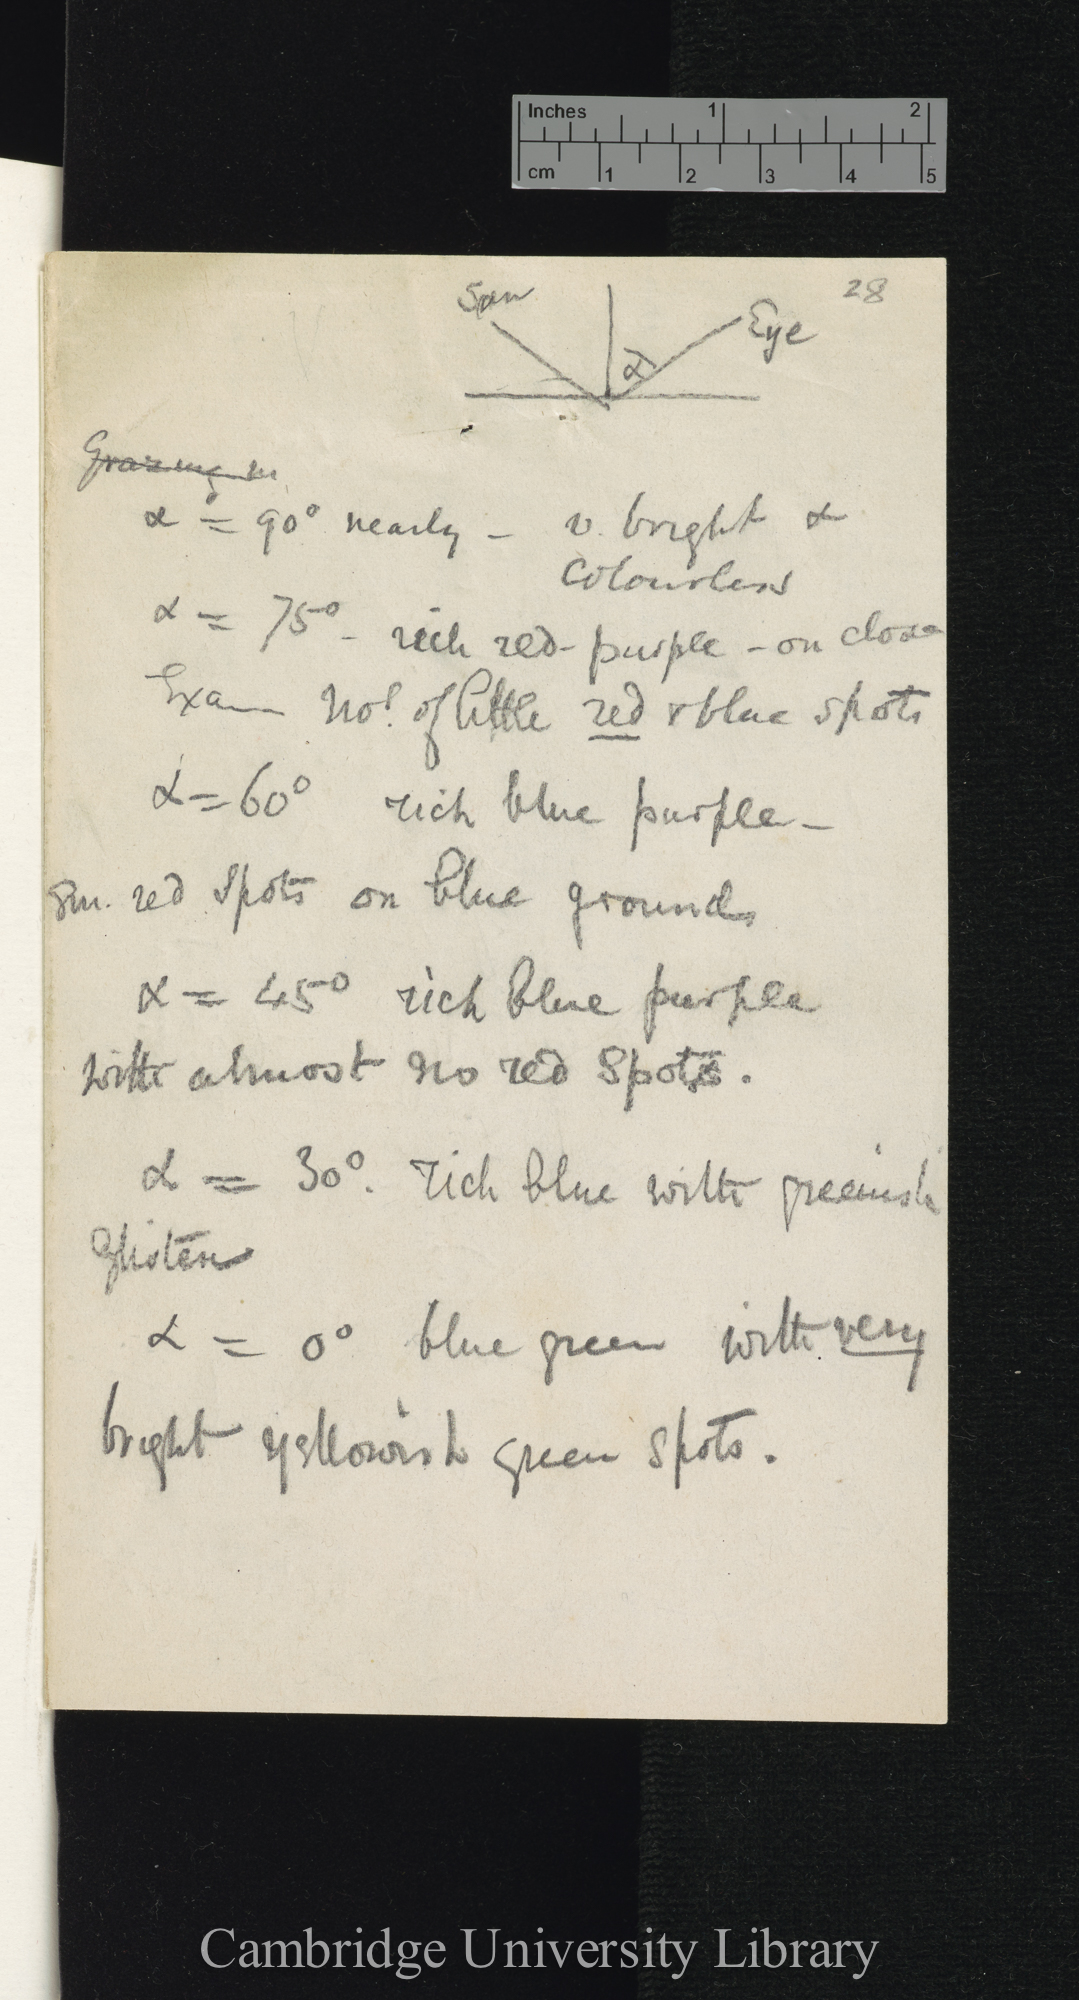 Inches 1 2
cm 1 2 3 4 5
28
Sun
Eye
α
Grazing in
α = 90° nearly - v. bright &
colourless
α = 75° - rich red-purple - on close
Exam No! of little red & blue spots
α = 60° rich blue purple -
Sm. red spots on blue ground
α = 45° rich blue purple
with almost no red spots.
α = 30°. rich blue with greenish
Glisten
α = 0° blue green with very
bright yellowish green spots.
Cambridge University Library